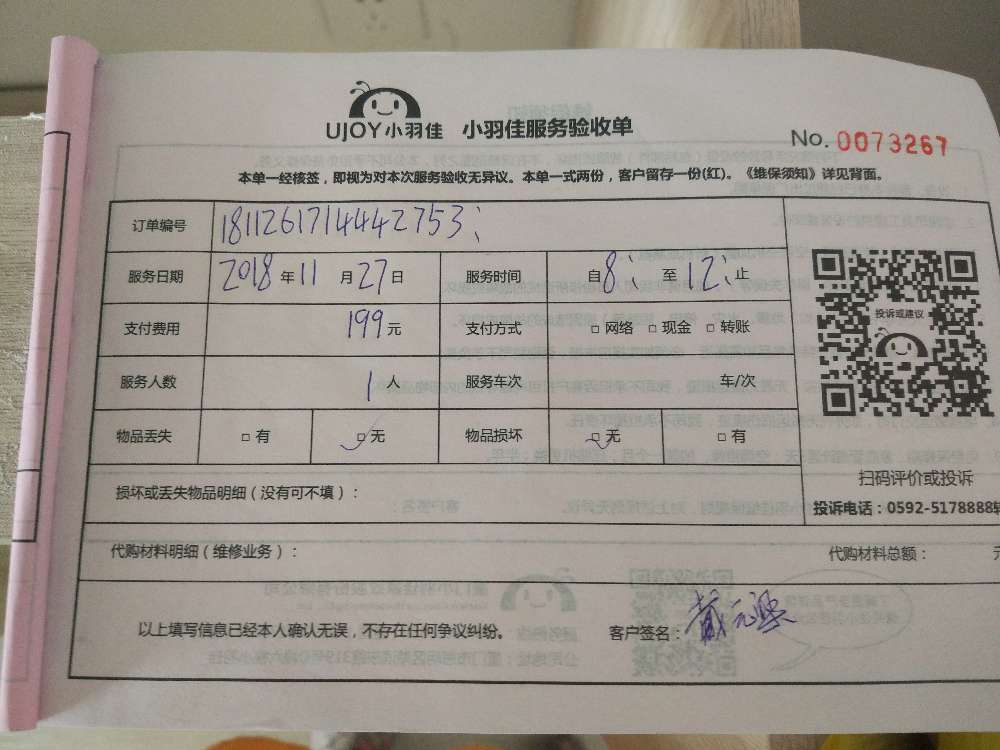 UJOY小羽佳 小羽佳服务验收单
No. 0073267
本单一经核签，即视为对本次服务验收无异议。本单一式两份，客户留存一份(红)。《维保须知》详见背面。
订单编号 1811261714442753
服务日期 2018年11月27日 服务时间 自8:至12:止
支付费用 199元 支付方式 □网络 □现金 □转账
服务人数 1人 服务车次 车/次
物品丢失 □有 ☑无 物品损坏 ☑无 □有
投诉或建议
扫码评价或投诉
损坏或丢失物品明细（没有可不填）：
投诉电话：0592-5178888转
代购材料明细（维修业务）： 代购材料总额： 元
以上填写信息已经本人确认无误，不存在任何争议纠纷。 客户签名：戴元